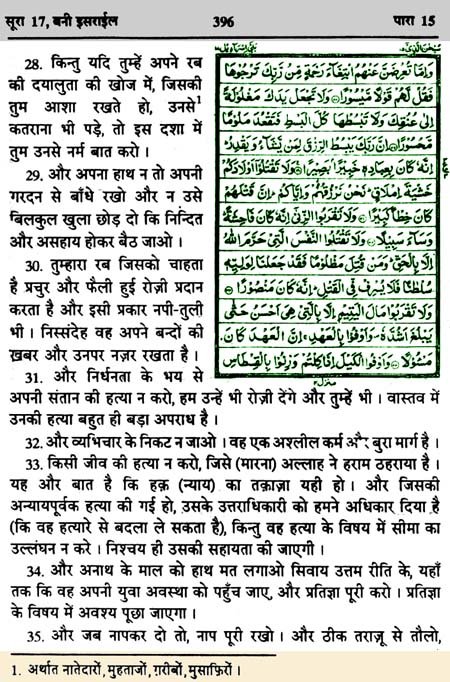 सूरा 17, बनी इसराईल 396 पारा 15
28. किन्तु यदि तुम्हें अपने रब
की दयालुता की खोज में, जिसकी
तुम आशा रखते हो, उनसे¹
कतराना भी पड़े, तो इस दशा में
तुम उनसे नर्म बात करो ।
29. और अपना हाथ न तो अपनी
गरदन से बाँधे रखो और न उसे
बिलकुल खुला छोड़ दो कि निन्दित
और असहाय होकर बैठ जाओ ।
30. तुम्हारा रब जिसको चाहता
है प्रचुर और फैली हुई रोज़ी प्रदान
करता है और इसी प्रकार नपी-तुली
भी । निस्संदेह वह अपने बन्दों की
ख़बर और उनपर नज़र रखता है ।
وَإِمَّا تُعْرِضَنَّ عَنْهُمُ ابْتِغَاءَ رَحْمَةٍ مِّن رَّبِّكَ تَرْجُوهَا
فَقُل لَّهُمْ قَوْلًا مَّيْسُورًا۝ وَلَا تَجْعَلْ يَدَكَ مَغْلُولَةً
إِلَىٰ عُنُقِكَ وَلَا تَبْسُطْهَا كُلَّ الْبَسْطِ فَتَقْعُدَ مَلُومًا
مَّحْسُورًا۝ إِنَّ رَبَّكَ يَبْسُطُ الرِّزْقَ لِمَن يَشَاءُ وَيَقْدِرُ ۚ
إِنَّهُ كَانَ بِعِبَادِهِ خَبِيرًا بَصِيرًا۝ وَلَا تَقْتُلُوا أَوْلَادَكُمْ
خَشْيَةَ إِمْلَاقٍ ۖ نَّحْنُ نَرْزُقُهُمْ وَإِيَّاكُمْ ۚ إِنَّ قَتْلَهُمْ
كَانَ خِطْئًا كَبِيرًا۝ وَلَا تَقْرَبُوا الزِّنَىٰ إِنَّهُ كَانَ فَاحِشَةً ۖ
وَسَاءَ سَبِيلًا۝ وَلَا تَقْتُلُوا النَّفْسَ الَّتِي حَرَّمَ اللَّهُ
إِلَّا بِالْحَقِّ ۗ وَمَن قُتِلَ مَظْلُومًا فَقَدْ جَعَلْنَا لِوَلِيِّهِ
سُلْطَانًا فَلَا يُسْرِف فِّي الْقَتْلِ ۖ إِنَّهُ كَانَ مَنصُورًا۝
وَلَا تَقْرَبُوا مَالَ الْيَتِيمِ إِلَّا بِالَّتِي هِيَ أَحْسَنُ حَتَّىٰ
يَبْلُغَ أَشُدَّهُ ۚ وَأَوْفُوا بِالْعَهْدِ ۖ إِنَّ الْعَهْدَ كَانَ
مَسْئُولًا۝ وَأَوْفُوا الْكَيْلَ إِذَا كِلْتُمْ وَزِنُوا بِالْقِسْطَاسِ
31. और निर्धनता के भय से
अपनी संतान की हत्या न करो, हम उन्हें भी रोज़ी देंगे और तुम्हें भी । वास्तव में
उनकी हत्या बहुत ही बड़ा अपराध है ।
32. और व्यभिचार के निकट न जाओ । वह एक अश्लील कर्म और बुरा मार्ग है ।
33. किसी जीव की हत्या न करो, जिसे (मारना) अल्लाह ने हराम ठहराया है ।
यह और बात है कि हक़ (न्याय) का तक़ाज़ा यही हो । और जिसकी
अन्यायपूर्वक हत्या की गई हो, उसके उत्तराधिकारी को हमने अधिकार दिया है
(कि वह हत्यारे से बदला ले सकता है), किन्तु वह हत्या के विषय में सीमा का
उल्लंघन न करे । निश्चय ही उसकी सहायता की जाएगी ।
34. और अनाथ के माल को हाथ मत लगाओ सिवाय उत्तम रीति के, यहाँ
तक कि वह अपनी युवा अवस्था को पहुँच जाए, और प्रतिज्ञा पूरी करो । प्रतिज्ञा
के विषय में अवश्य पूछा जाएगा ।
35. और जब नापकर दो तो, नाप पूरी रखो । और ठीक तराज़ू से तौलो,
1. अर्थात नातेदारों, मुहताजों, ग़रीबों, मुसाफ़िरों ।